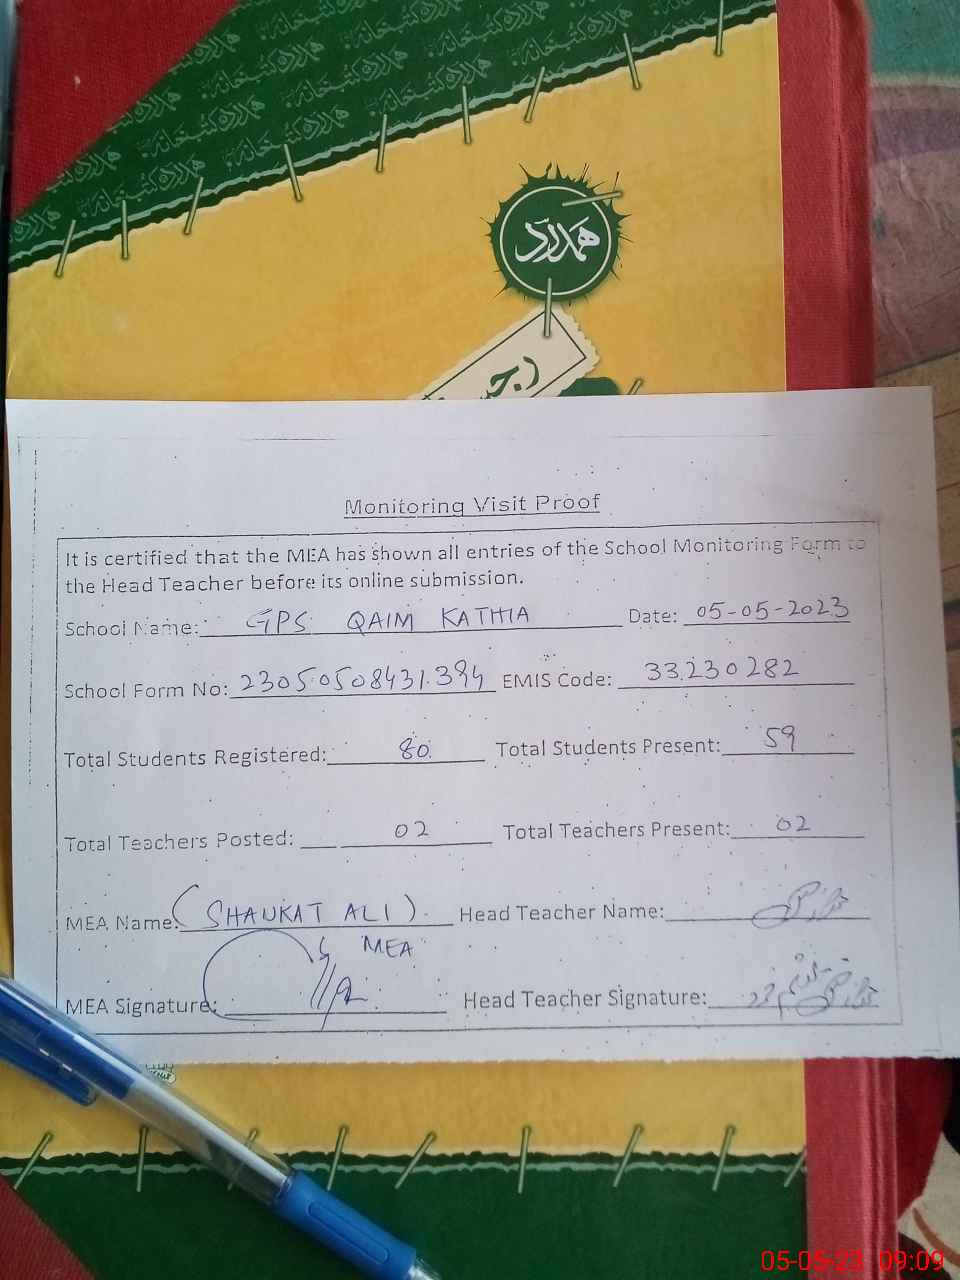 ہمدرد کتب خانہ
ہمدرد
رجسٹر
Monitoring Visit Proof
It is certified that the MEA has shown all entries of the School Monitoring Form to
the Head Teacher before its online submission.
School Name: GPS QAIM KATHIA Date: 05-05-2023
School Form No: 23050508431394 EMIS Code: 33230282
Total Students Registered: 80 Total Students Present: 59
Total Teachers Posted: 02 Total Teachers Present: 02
MEA Name: (SHAUKAT ALI) Head Teacher Name:
MEA
MEA Signature: Head Teacher Signature:
05-05-23 09:09